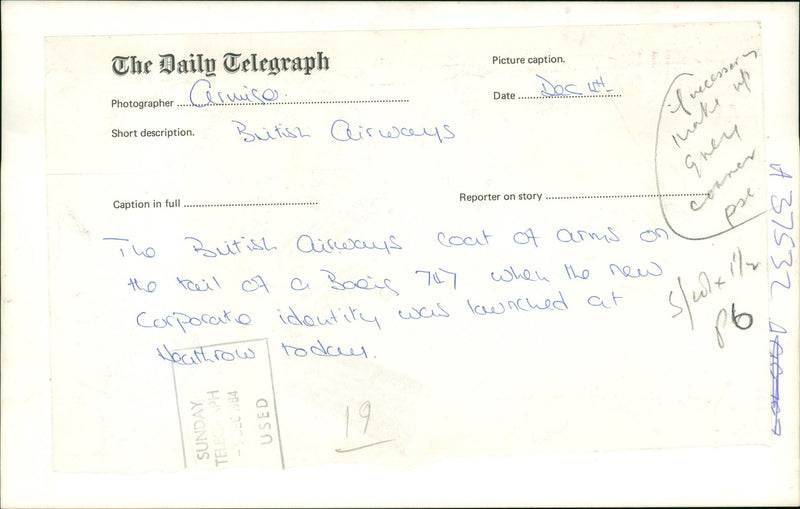 The Daily Telegraph
Picture caption.
Photographer
Date Dec 4th
Short description. British Airways
Caption in full
Reporter on story
The British Airways coat of arms on
the tail of a Boeig 747 when the new
Corporate identity was launched at
Heathrow today.
if necessary
make up
grey
corner
pse.
P6
A 37532
SUNDAY
TELEGRAPH
DEC 1984
USED
19